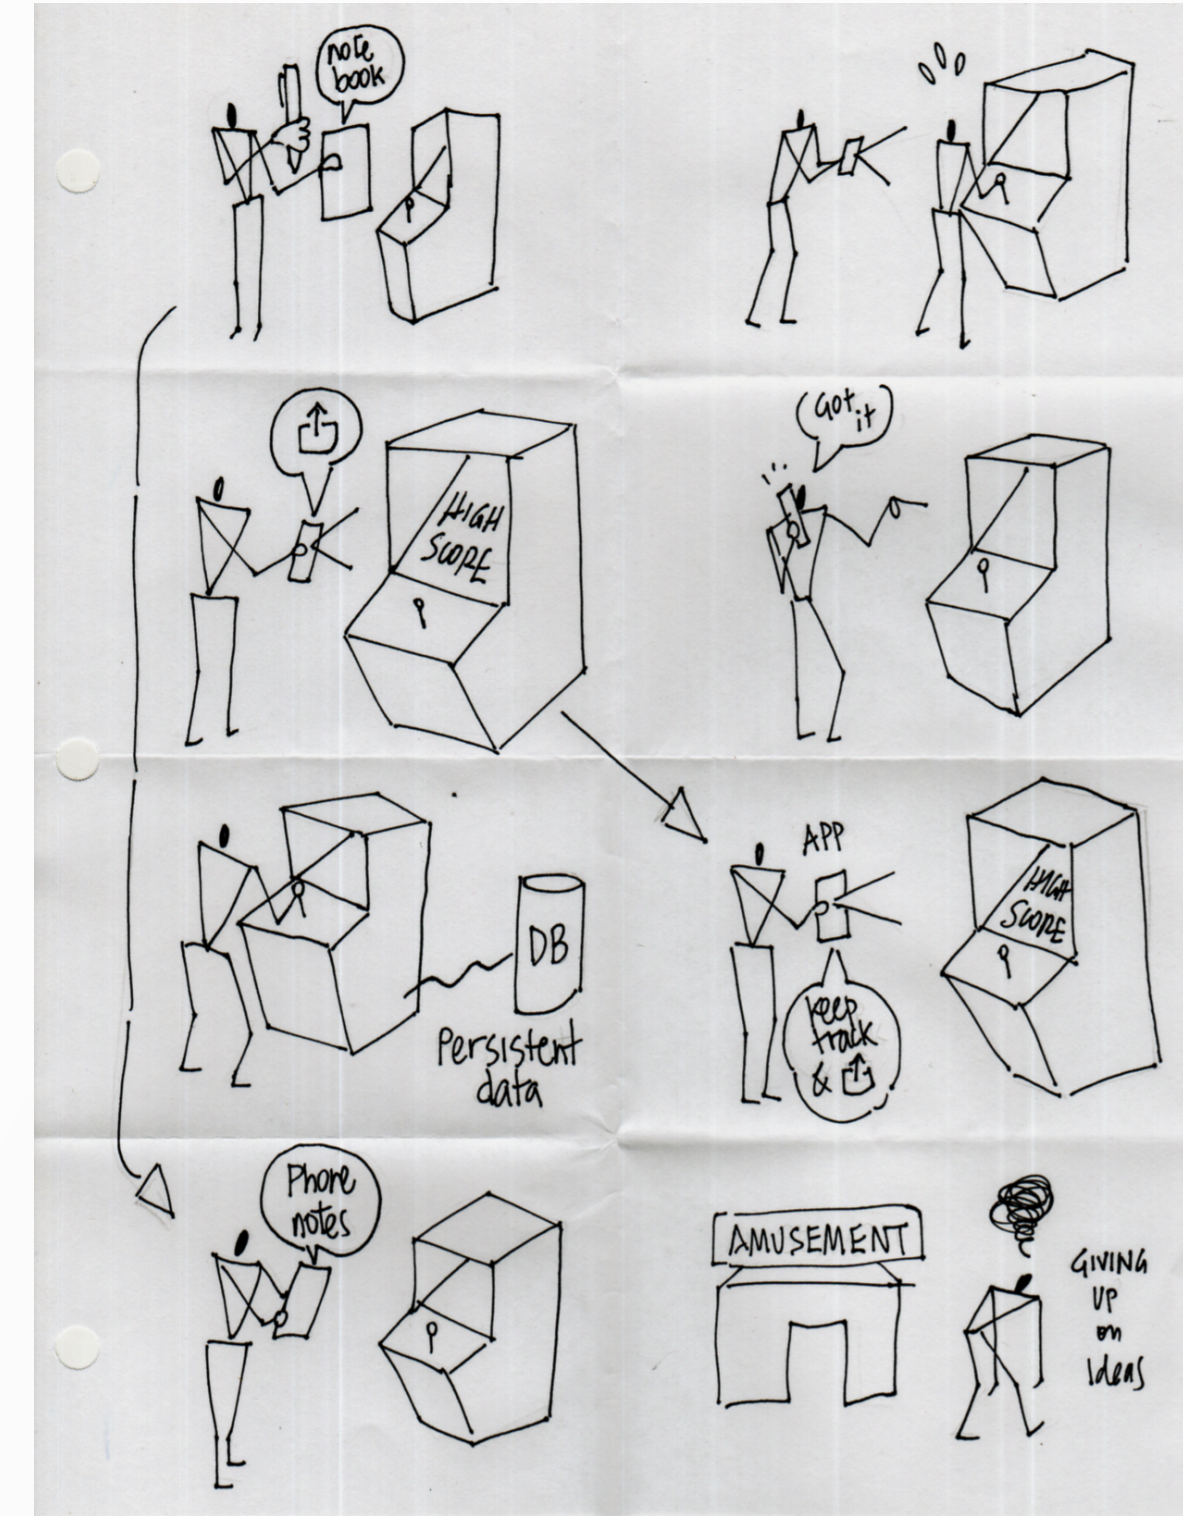 note
book
HIGH
SCORE
Got
it
DB
Persistent
data
APP
HIGH
SCORE
keep
track
&
Phone
notes
AMUSEMENT
GIVING
UP
on
Ideas